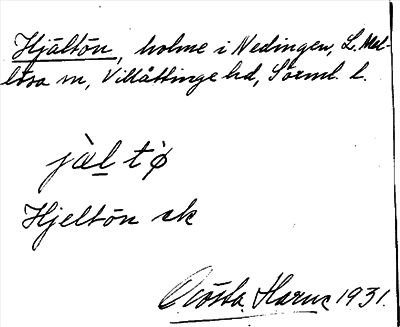 Hjältön, holme i Nedingen, L. Mel-
lösa sn, Villåttinge hd, Sörml. l.
jàl tö̀
Hjeltön ek
Gösta Harne 1931.